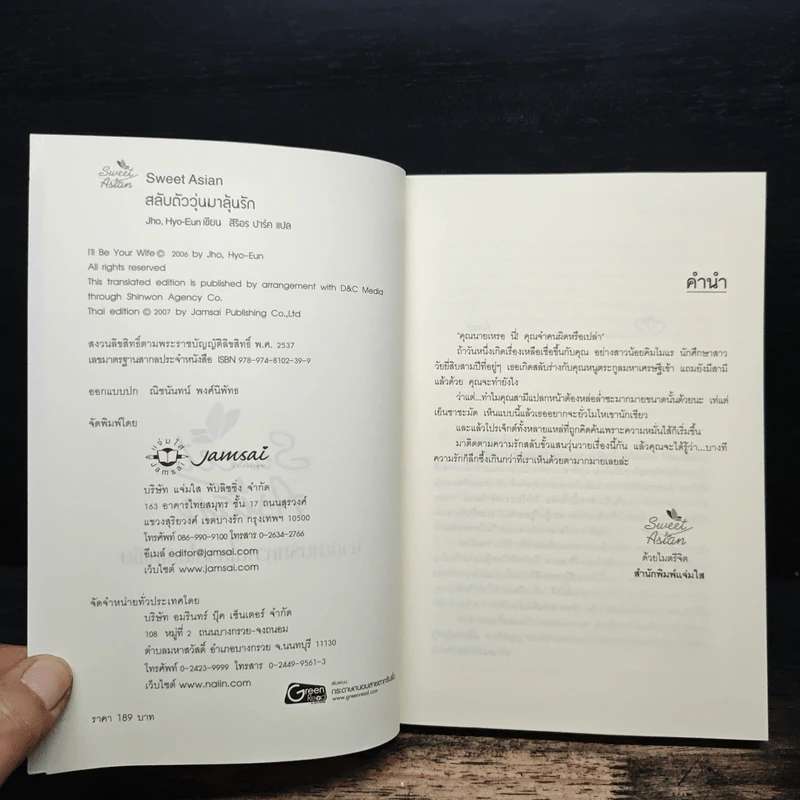 Sweet Asian
Sweet Asian
สลับตัววุ่นมาลุ้นรัก
Jho, Hyo-Eun เขียน สิริอร ปาร์ค แปล
I'll Be Your Wife © 2006 by Jho, Hyo-Eun
All rights reserved
This translated edition is published by arrangement with D&C Media
through Shinwon Agency Co.
Thai edition © 2007 by Jamsai Publishing Co.,Ltd
สงวนลิขสิทธิ์ตามพระราชบัญญัติลิขสิทธิ์ พ.ศ. 2537
เลขมาตรฐานสากลประจำหนังสือ ISBN 978-974-8102-39-9
ออกแบบปก ณิชนันทน์ พงศ์นิพัทธ
จัดพิมพ์โดย
แจ่มใส
Jamsai
Jamsai
บริษัท แจ่มใส พับลิชชิ่ง จำกัด
163 อาคารไทยสมุทร ชั้น 17 ถนนสุรวงศ์
แขวงสุริยวงศ์ เขตบางรัก กรุงเทพฯ 10500
โทรศัพท์ 086-990-9100 โทรสาร 0-2634-2766
อีเมล์ editor@jamsai.com
เว็บไซต์ www.jamsai.com
จัดจำหน่ายทั่วประเทศโดย
บริษัท อมรินทร์ บุ๊ค เซ็นเตอร์ จำกัด
108 หมู่ที่ 2 ถนนบางกรวย-จงถนอม
ตำบลมหาสวัสดิ์ อำเภอบางกรวย จ.นนทบุรี 11130
โทรศัพท์ 0-2423-9999 โทรสาร 0-2449-9561-3
เว็บไซต์ www.naiin.com
Green Read
กระดาษถนอมสายตา
www.greenread.com
ราคา 189 บาท
คำนำ
'คุณนายเหรอ นี่! คุณจำคนผิดหรือเปล่า'
ถ้าวันหนึ่งเกิดเรื่องเหลือเชื่อขึ้นกับคุณ อย่างสาวน้อยคิมโมแร นักศึกษาสาว
วัยยี่สิบสามปีที่อยู่ๆ เธอเกิดสลับร่างกับคุณหนูตระกูลมหาเศรษฐีเข้า แถมยังมีสามี
แล้วด้วย คุณจะทำยังไง
ว่าแต่...ทำไมคุณสามีแปลกหน้าต้องหล่อล่ำซะมากมายขนาดนั้นด้วยนะ เท่แต่
เย็นชาชะมัด เห็นแบบนี้แล้วเธออยากจะยั่วโมโหเขานักเชียว
และแล้วโปรเจ็กต์ทั้งหลายแหล่ที่ถูกคิดค้นเพราะความหมั่นไส้ก็เริ่มขึ้น
มาติดตามความรักสลับขั้วแสนวุ่นวายเรื่องนี้กัน แล้วคุณจะได้รู้ว่า...บางที
ความรักก็ลึกซึ้งเกินกว่าที่เราเห็นด้วยตามากมายเลยล่ะ
Sweet Asian
ด้วยไมตรีจิต
สำนักพิมพ์แจ่มใส